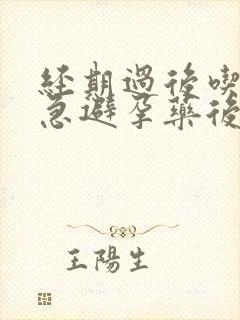 経期過後喫
急避孕藥後
王陽生